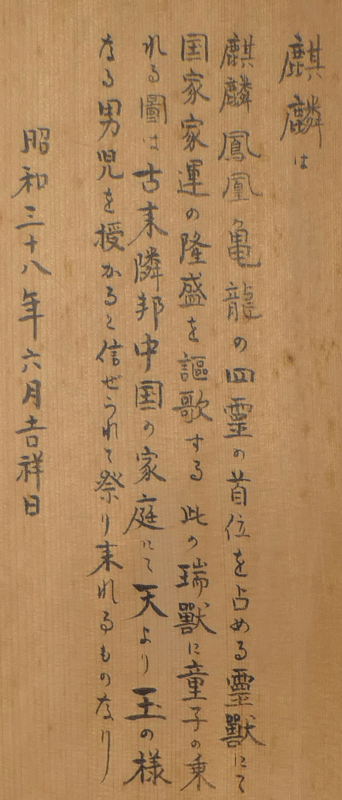 麒麟は
麒麟鳳凰亀龍の四靈の首位を占める靈獸にて
国家家運の隆盛を謳歌する此の瑞獸に童子の乗
れる圖は古来隣邦中国の家庭にて天より玉の様
なる男児を授かると信ぜられて祭り来れるものなり
昭和三十八年六月吉祥日